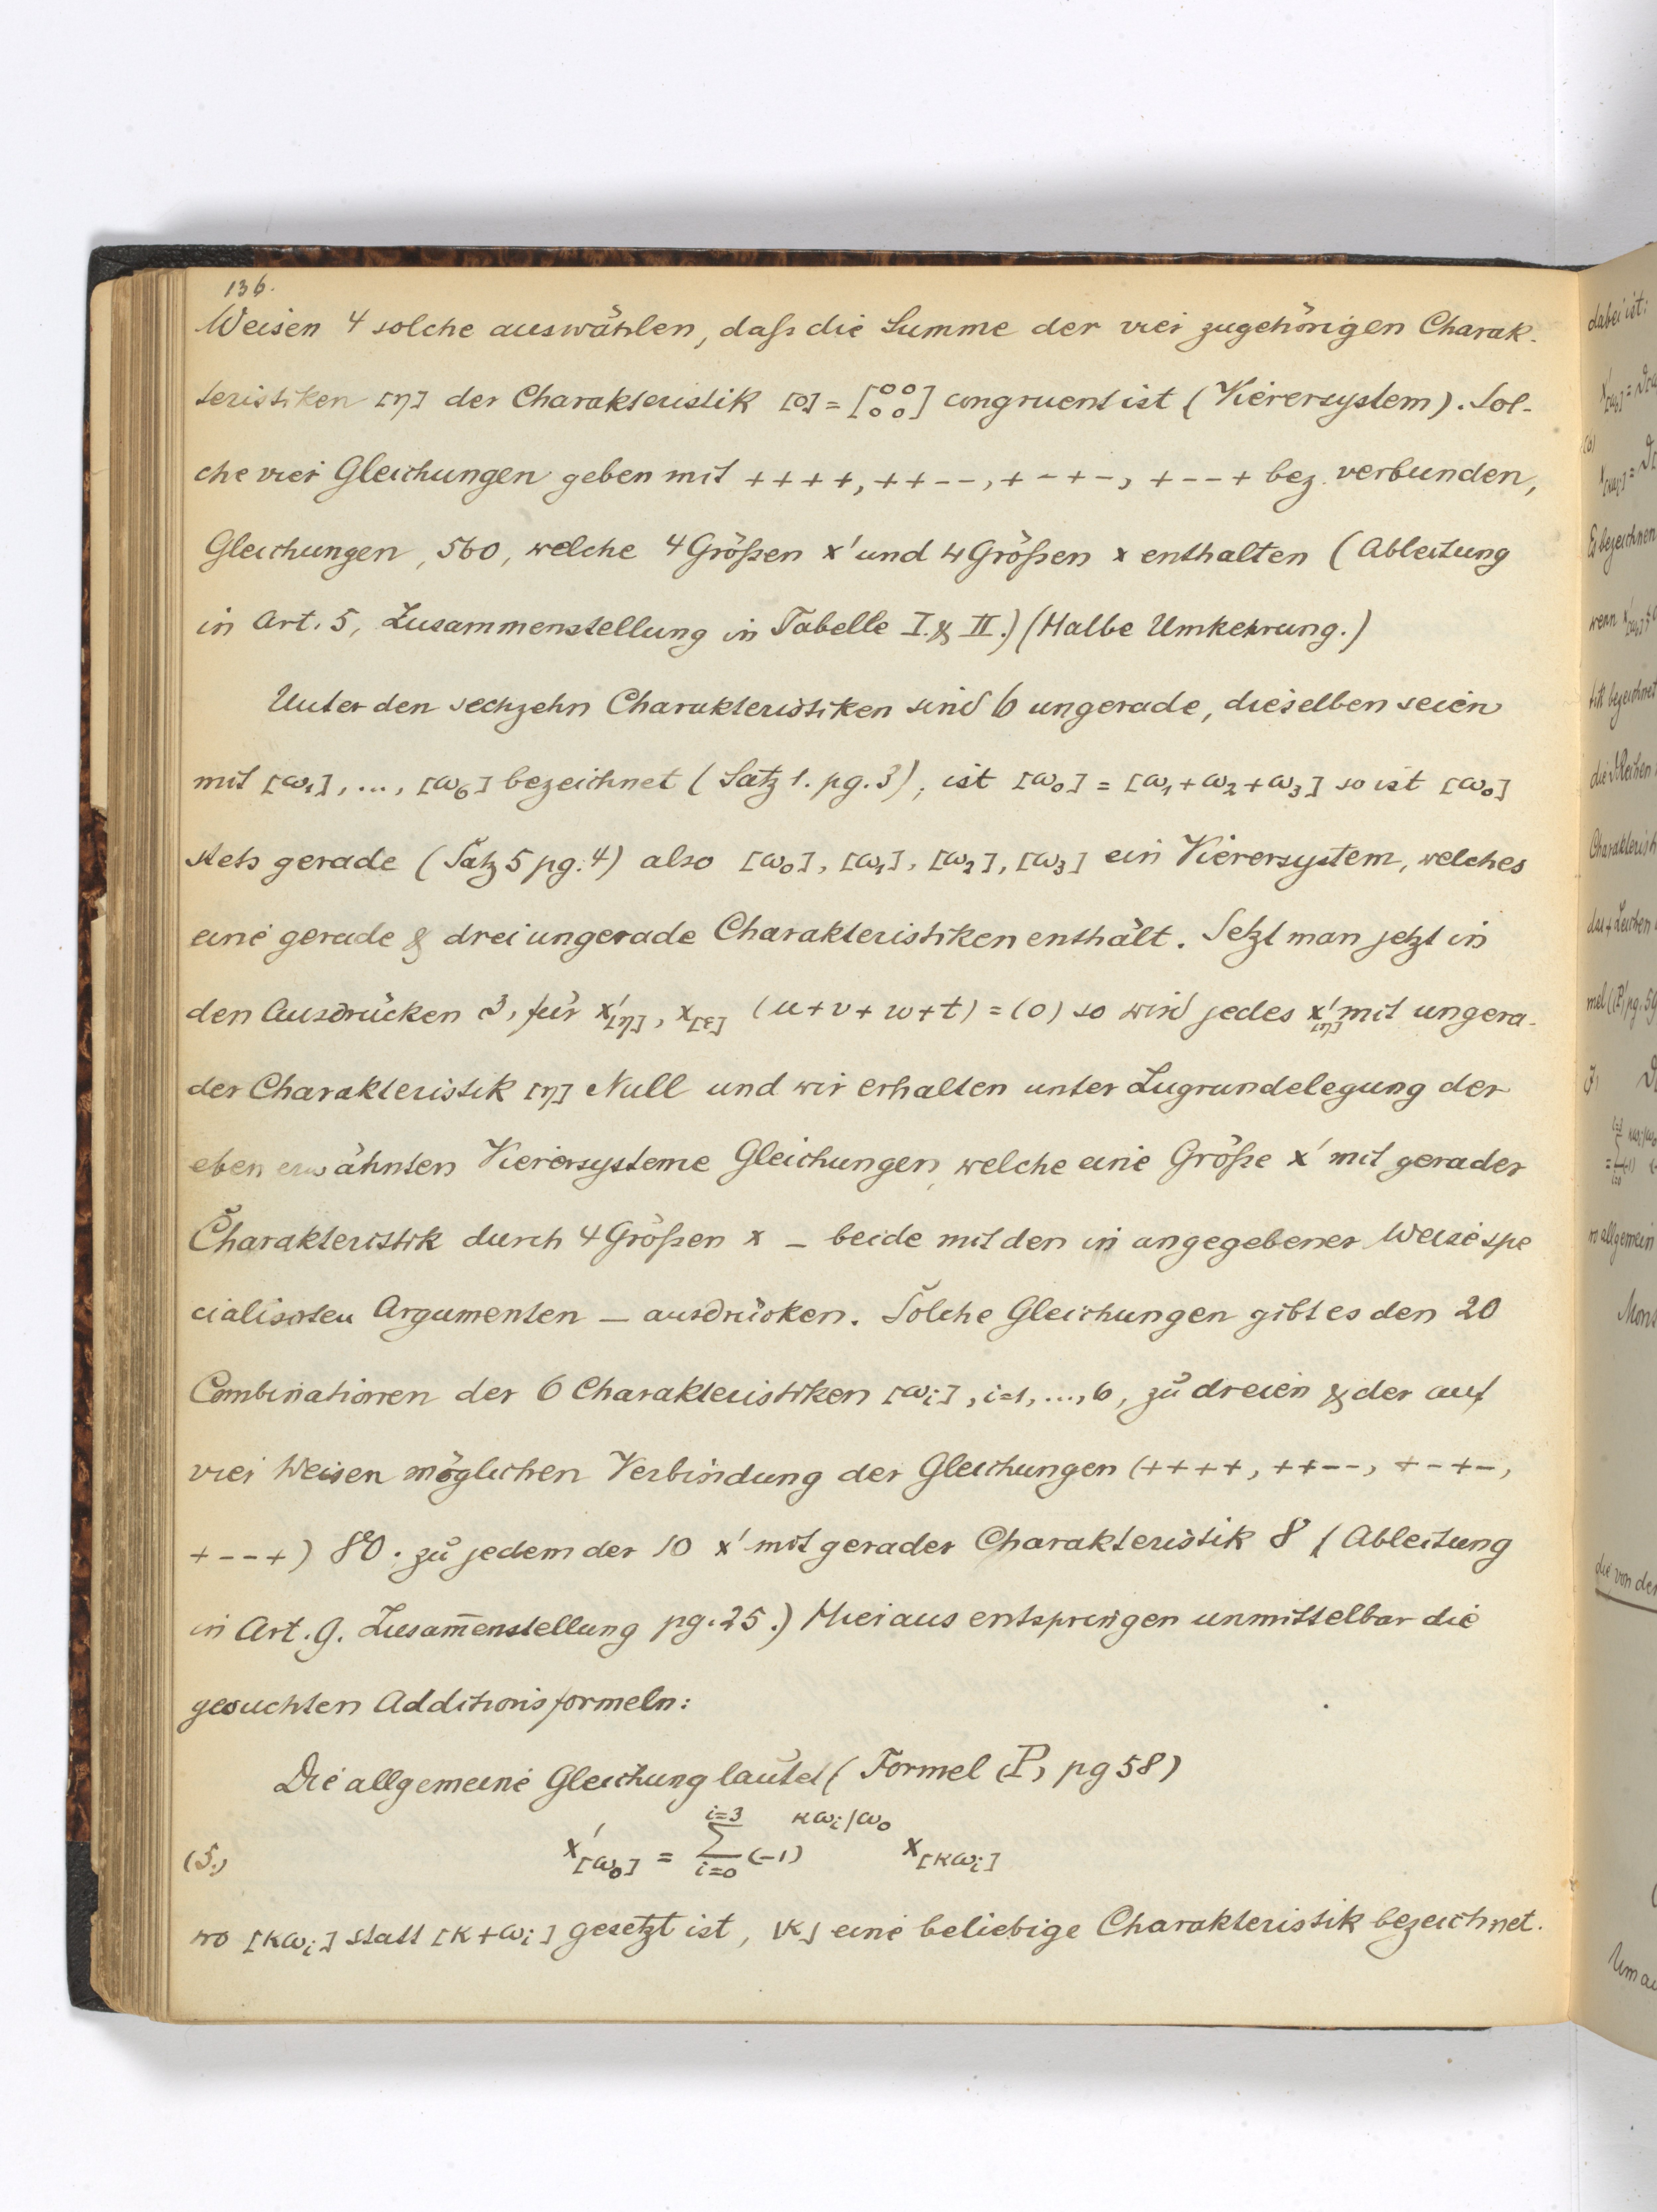 136.
Weisen 4 solche auswählen, daß die Summe der vier zugehörigen Charak-
teristiken [η] der Charakteristik [0] = [00/00] congruent ist (Vierersystem). Sol-
che vier Gleichungen geben mit ++++, ++--, +-+-, +--+ bez. verbunden,
Gleichungen, 560, welche 4 Größen x' und 4 Größen x enthalten (Ableitung
in Art. 5, Zusammenstellung in Tabelle I. & II.) (Halbe Umkehrung.)
Unter den sechzehn Charakteristiken sind 6 ungerade, dieselben seien
mit [ω₁], ..., [ω₆] bezeichnet (Satz 1. pg. 3), ist [ω₀] = [ω₁+ω₂+ω₃] so ist [ω₀]
stets gerade (Satz 5 pg. 4) also [ω₀], [ω₁], [ω₂], [ω₃] ein Vierersystem, welches
eine gerade & drei ungerade Charakteristiken enthält. Setzt man jetzt in
den Ausdrücken 3, für x'[η], x[ε] (u+v+w+t) = (0) so wird jedes x'[η] mit ungera-
der Charakteristik [η] Null und wir erhalten unter Zugrundelegung der
eben erwähnten Vierersysteme Gleichungen, welche eine Größe x' mit gerader
Charakteristik durch 4 Größen x – beide mit den in angegebener Weise spe
cialisirten Argumenten – ausdrücken. Solche Gleichungen gibt es den 20
Combinationen der 6 Charakteristiken [ωᵢ], i=1, ..., 6, zu dreien & der auf
vier Weisen möglichen Verbindung der Gleichungen (++++, ++--, +-+-,
+--+) 80. zu jedem der 10 x' mit gerader Charakteristik 8 (Ableitung
in Art. 9. Zusam̅enstellung pg. 25.) Hieraus entspringen unmittelbar die
gesuchten Additionsformeln:
Die allgemeine Gleichung lautet (Formel (P) pg 58)
(5.) x'[ω₀] = Σ_{i=0}^{i=3} (-1)^{κωᵢ|ω₀} x[κωᵢ]
wo [κωᵢ] statt [κ+ωᵢ] gesetzt ist, [κ] eine beliebige Charakteristik bezeichnet.
dabei ist:
Es bezeichnen
wenn
bezeichnet
die Reihen
Charakteristi
das + Zeichen
mel ((P) pg. 59
wo allgemein
die von der
Um au